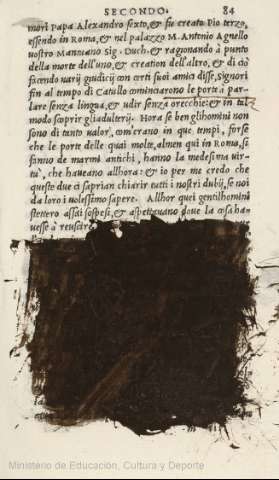 SECONDO. 84
morì Papa Alexandro sexto, & fu creato Pio terzo,
essendo in Roma, & nel palazzo M. Antonio Agnello
nostro Mantuano Sig. Duch. & ragionando à punto
della morte dell'uno, & creation dell'altro, & di ciò
facendo varij giudicij con certi suoi amici disse, Signori
fin al tempo di Catullo cominciarono le porte à par-
lare senza lingua, & udir senza orecchie: & in tal
modo scoprir gliadulterij. Hora se ben glihomini non
sono di tanto valor, com'erano in que tempi, forse
che le porte delle quai molte, almen qui in Roma, si
fanno de marmi antichi, hanno la medesima vir-
tù, che haueano allhora: & io per me credo che
queste due ci saprian chiarir tutti i nostri dubij, se noi
da loro i uolessimo sapere. Allhor quei gentilhomini
stettero assai sospesi, & aspettauano doue la cosa ha-
uesse à reuscire.
Ministerio de Educación, Cultura y Deporte